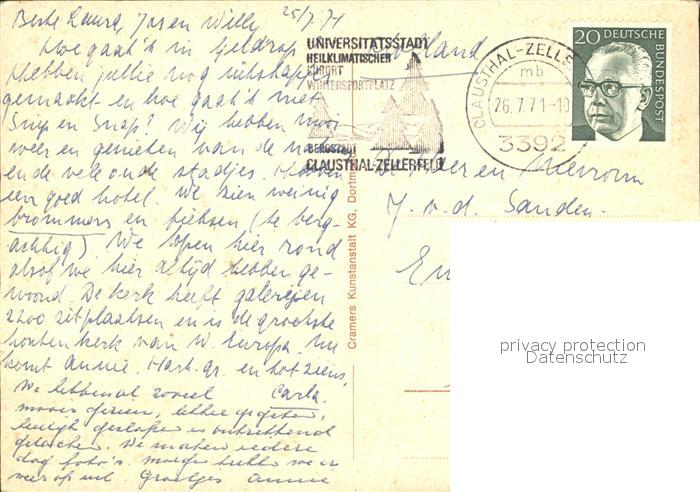 25/7 71
Beste Laura, Jos en Willy
Hoe gaat 't in Geldrop
Hebben jullie nog uitstapjes
gemaakt en hoe gaat 't met
Snip en Snap? Wij hebben mooi
weer en genieten van de natuur
en de vele oude stadjes. Hebben
een goed hotel. We zien weinig
brommers en fietsen (te berg-
achtig) We lopen hier rond
alsof we hier altijd hebben ge-
woond. De kerk heeft galerijen
2200 zitplaatsen en is de grootste
houten kerk van W. Europa. Nu
komt Annie. Hart. gr. en tot ziens,
Carla.
We hebben al zoveel
moois gezien, lekker gegeten,
heerlijk geslapen en ontzettend
gelachen. We maken iedere
dag foto's. morgen trekken we er
weer op uit Groetjes Annie
UNIVERSITÄTSSTADT
HEILKLIMATISCHER
KURORT
WINTERSPORTPLATZ
BERGSTADT
CLAUSTHAL-ZELLERFELD
CLAUSTHAL-ZELLE
mb
26.7.71-10
3392
20 DEUTSCHE
BUNDESPOST
Holland
Heer en Mevrouw
J. v. d. Sanden.
Cramers Kunstanstalt KG, Dortmund
privacy protection
Datenschutz